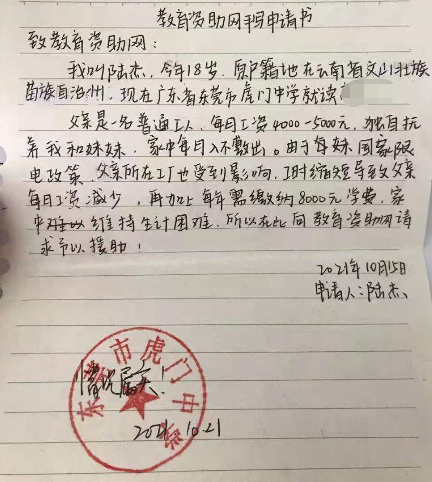 教育资助网写申请书
致教育资助网：
我叫陆杰，今年18岁，原户籍地在云南省文山壮族
苗族自治州，现在广东省东莞市虎门中学就读
父亲是一名普通工人，每月工资4000-5000元，独自抚
养我和妹妹，家中每月入不敷出。由于每妹国家限
电政策，父亲所在工厂也受到影响，工时缩短导致父亲
每月工资减少，再加上每年需缴纳8000元学费，家
中难以维持生计困难，所以在此向教育资助网请
求予以援助！
2021年10月15日
申请人：陆杰
情况属实！
2021 10.21
东 市虎门中